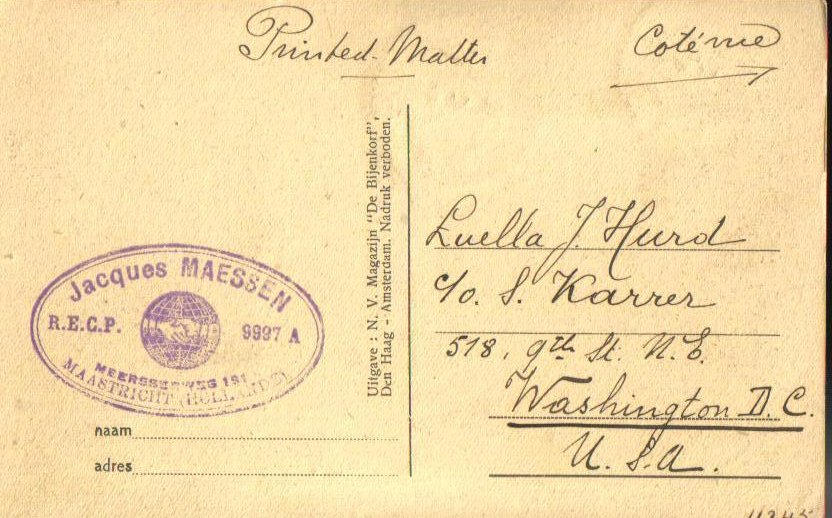 Printed-Matter
Coté vue
Luella J. Hurd
c/o. S. Karrer
518, 9th St. N.E.
Washington D.C.
U.S.A.
Uitgave : N. V. Magazijn "De Bijenkorf",
Den Haag - Amsterdam. Nadruk verboden.
Jacques MAESSEN
R.E.C.P. 9997 A
MEERSSERWEG 191
MAASTRICHT (HOLLANDE)
naam
adres